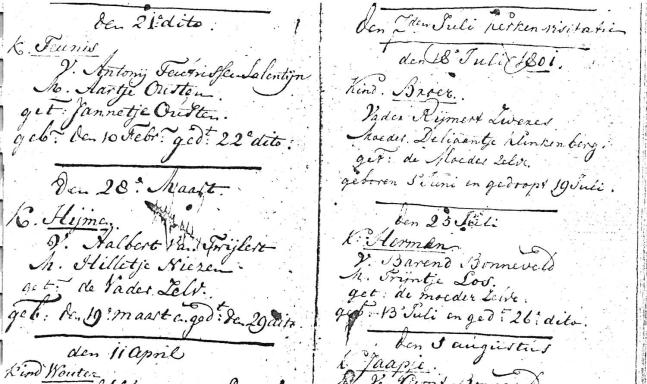 den 21e dito:
K. Teunis
V. Antonij Teunissen Valentijn
M. Aartje Ousten
get: Jannetje Ousten.
geb: den 10 Febr: gedt 22e dito:
Den 28e Maart
K. Hijme
V. Halbert van
M. Hilletje
get: de Vader Zelv.
geb: den 19e maart en gedt: den 29 dito
den 11 April
Kind Wouter
den 7den Julij kerken visitatie
den 18e Julij 1801.
Kind. Broer.
Vader Rijmert
Moeder. Klinkenberg.
get: de Moeder Zelv.
geboren 5 Juni en gedoopt 19 Juli.
den 25 Juli
K: Herman
V. Barend Bonneveld
M. Trijntje Los.
get: de moeder Zelve.
geb: 13 Juli en gedt 26e dito.
den 3 augustus
K. Jaapje.